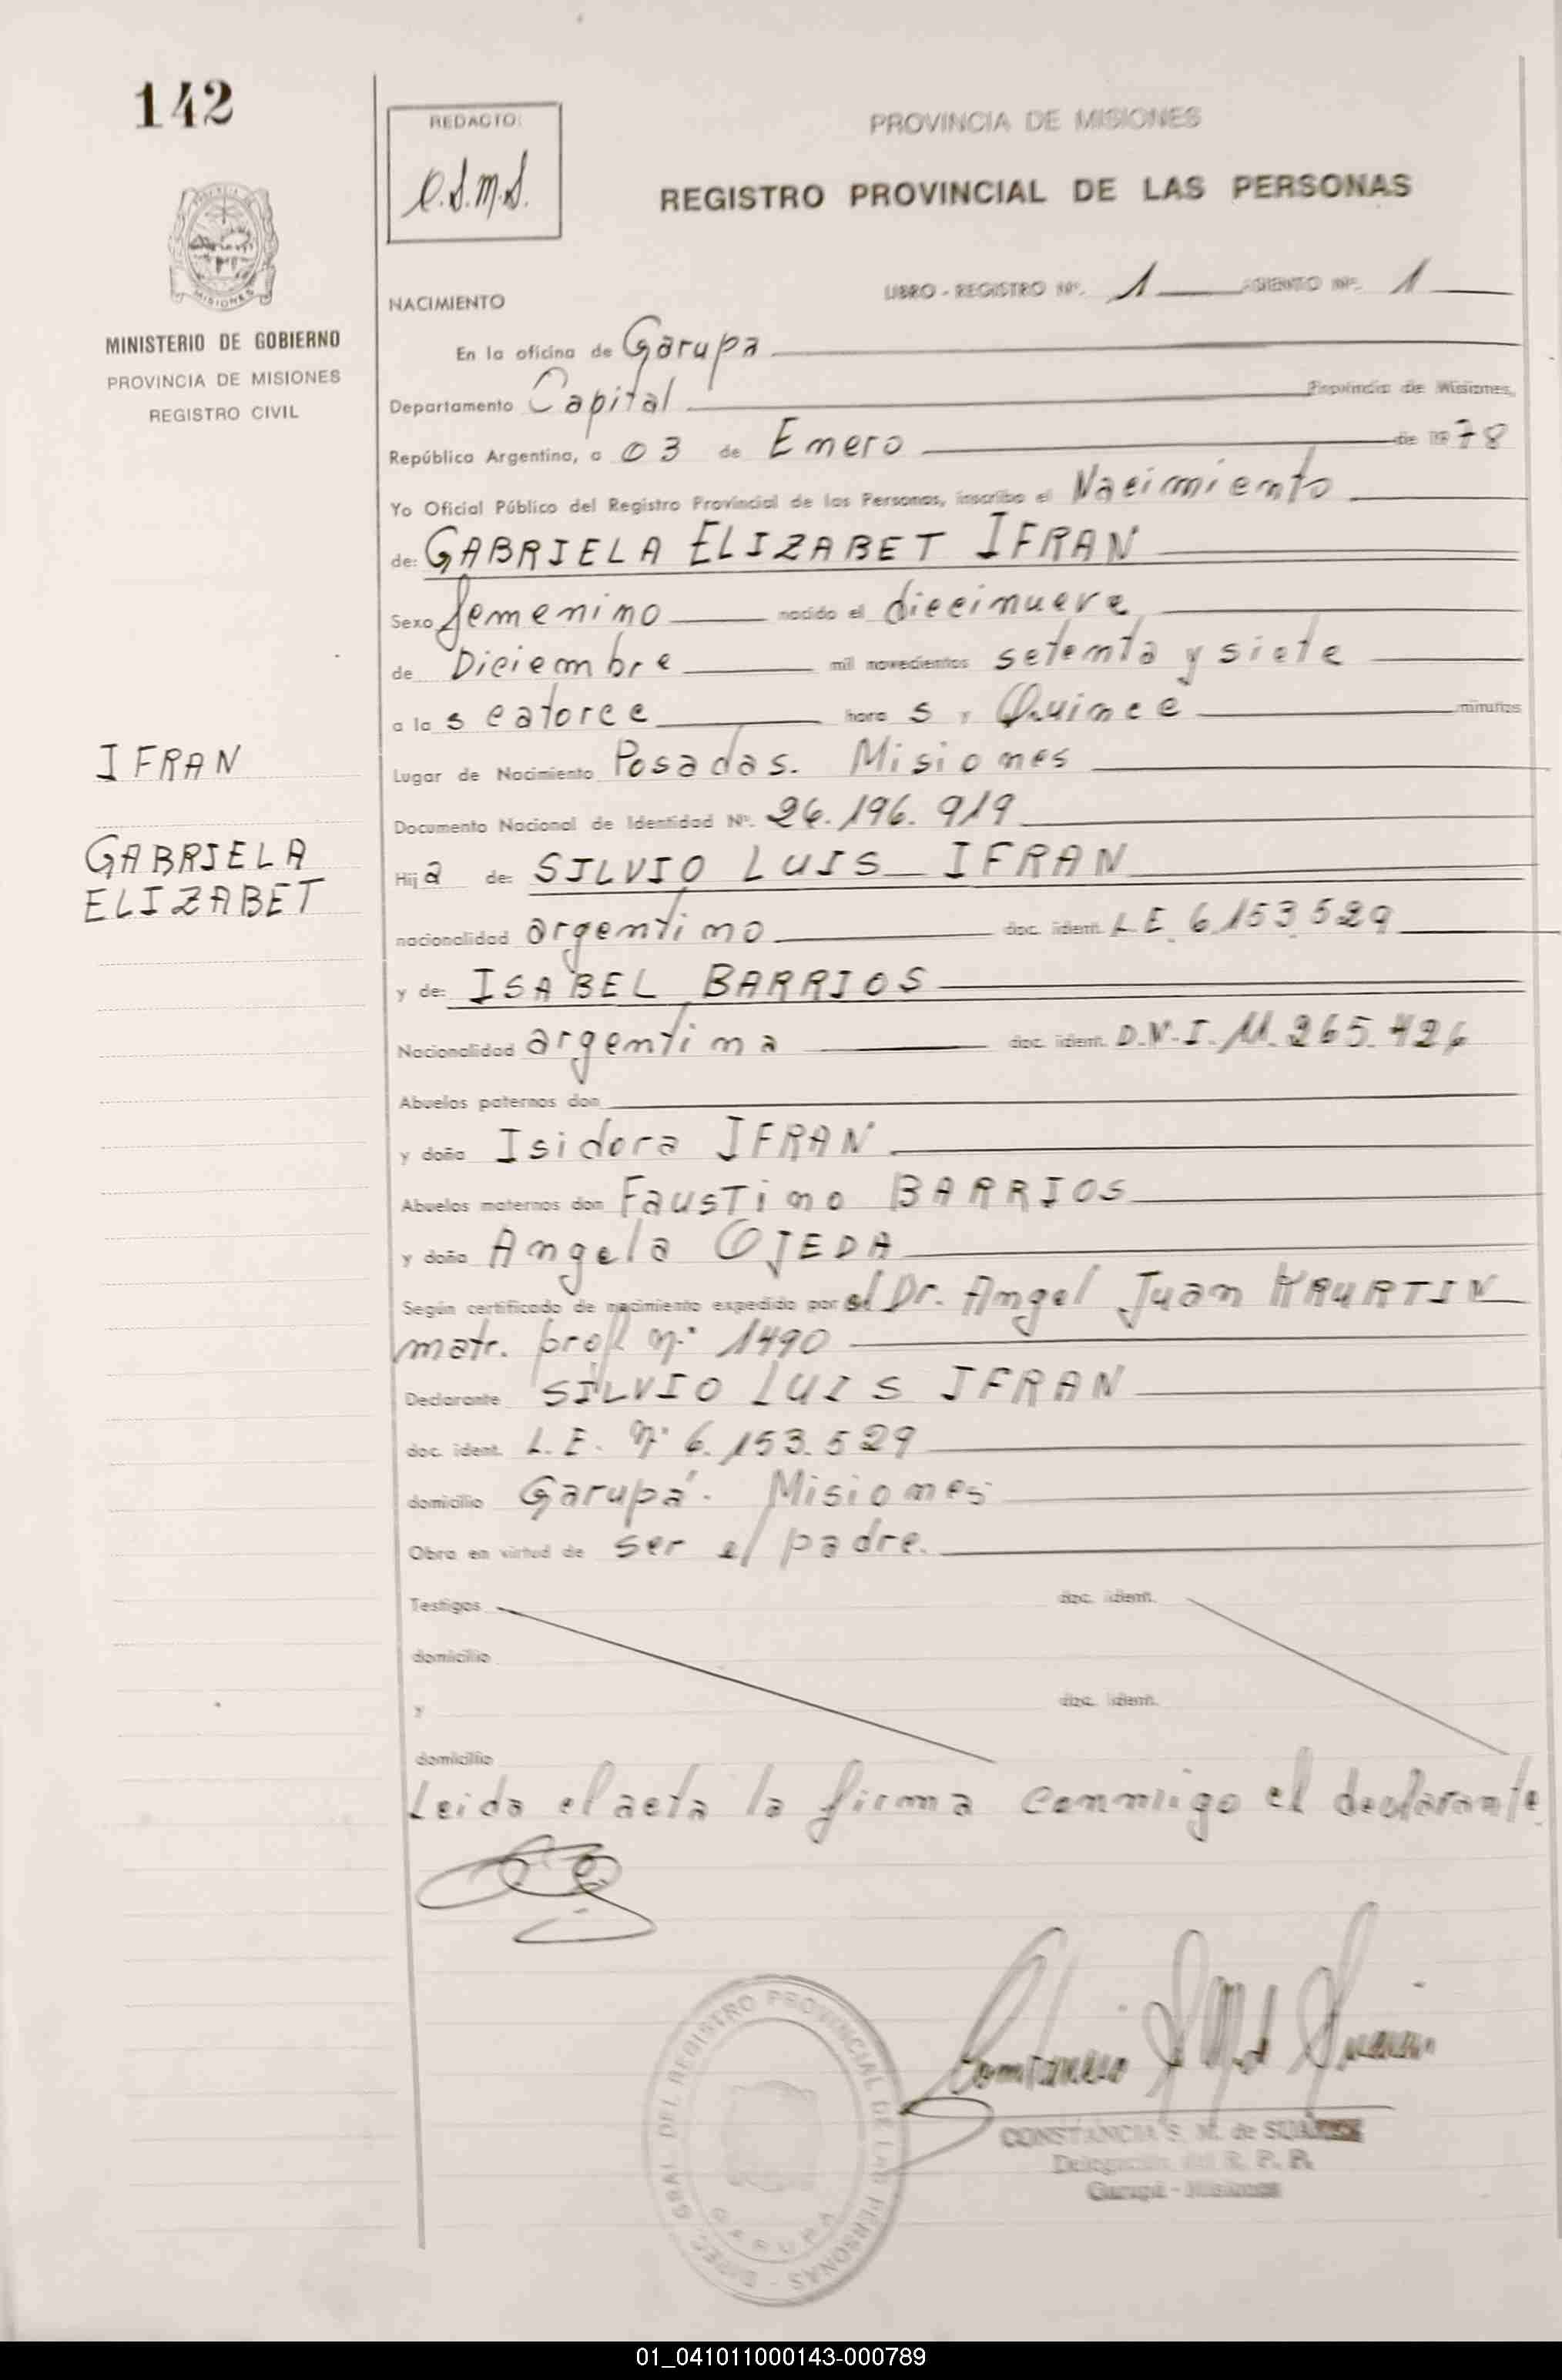 142
REDACTO:
C.S.M.S.
PROVINCIA DE MISIONES
REGISTRO PROVINCIAL DE LAS PERSONAS
MISIONES
MINISTERIO DE GOBIERNO
PROVINCIA DE MISIONES
REGISTRO CIVIL
LIBRO - REGISTRO Nº. 1 ASIENTO Nº. 1
NACIMIENTO
En la oficina de Garupa
Departamento Capital Provincia de Misiones,
República Argentina, a 03 de Enero de 1978
Yo Oficial Público del Registro Provincial de las Personas, inscribo el Nacimiento
de: GABRIELA ELIZABET IFRAN
Sexo femenino nacido el diecinueve
de Diciembre mil novecientos setenta y siete
a las catorce horas y Quince minutos
Lugar de Nacimiento Posadas. Misiones
IFRAN
GABRIELA
ELIZABET
Documento Nacional de Identidad Nº. 26.196.919
Hija de: SILVIO LUIS IFRAN
nacionalidad argentino doc. ident. L.E. 6.153.529
y de: ISABEL BARRIOS
Nacionalidad argentina doc. ident. D.N.I. 11.265.426
Abuelos paternos don
y doña Isidora IFRAN
Abuelos maternos don Faustino BARRIOS
y doña Angela OJEDA
Según certificado de nacimiento expedido por el Dr. Angel Juan
matr. prof. nº 1490
Declarante SILVIO LUIS IFRAN
doc. ident. L.E. nº 6.153.529
domicilio Garupá. Misiones
Obra en virtud de ser el padre.
Testigos doc. ident.
domicilio
y doc. ident.
domicilio
Leida el acta la firma conmigo el declarante.
DIREC. GRAL DEL REGISTRO PROVINCIAL DE LAS PERSONAS - GARUPA
CONSTANCIA S. M. de SUAREZ
R. P. P.
Garupá - Misiones
01_041011000143-000789